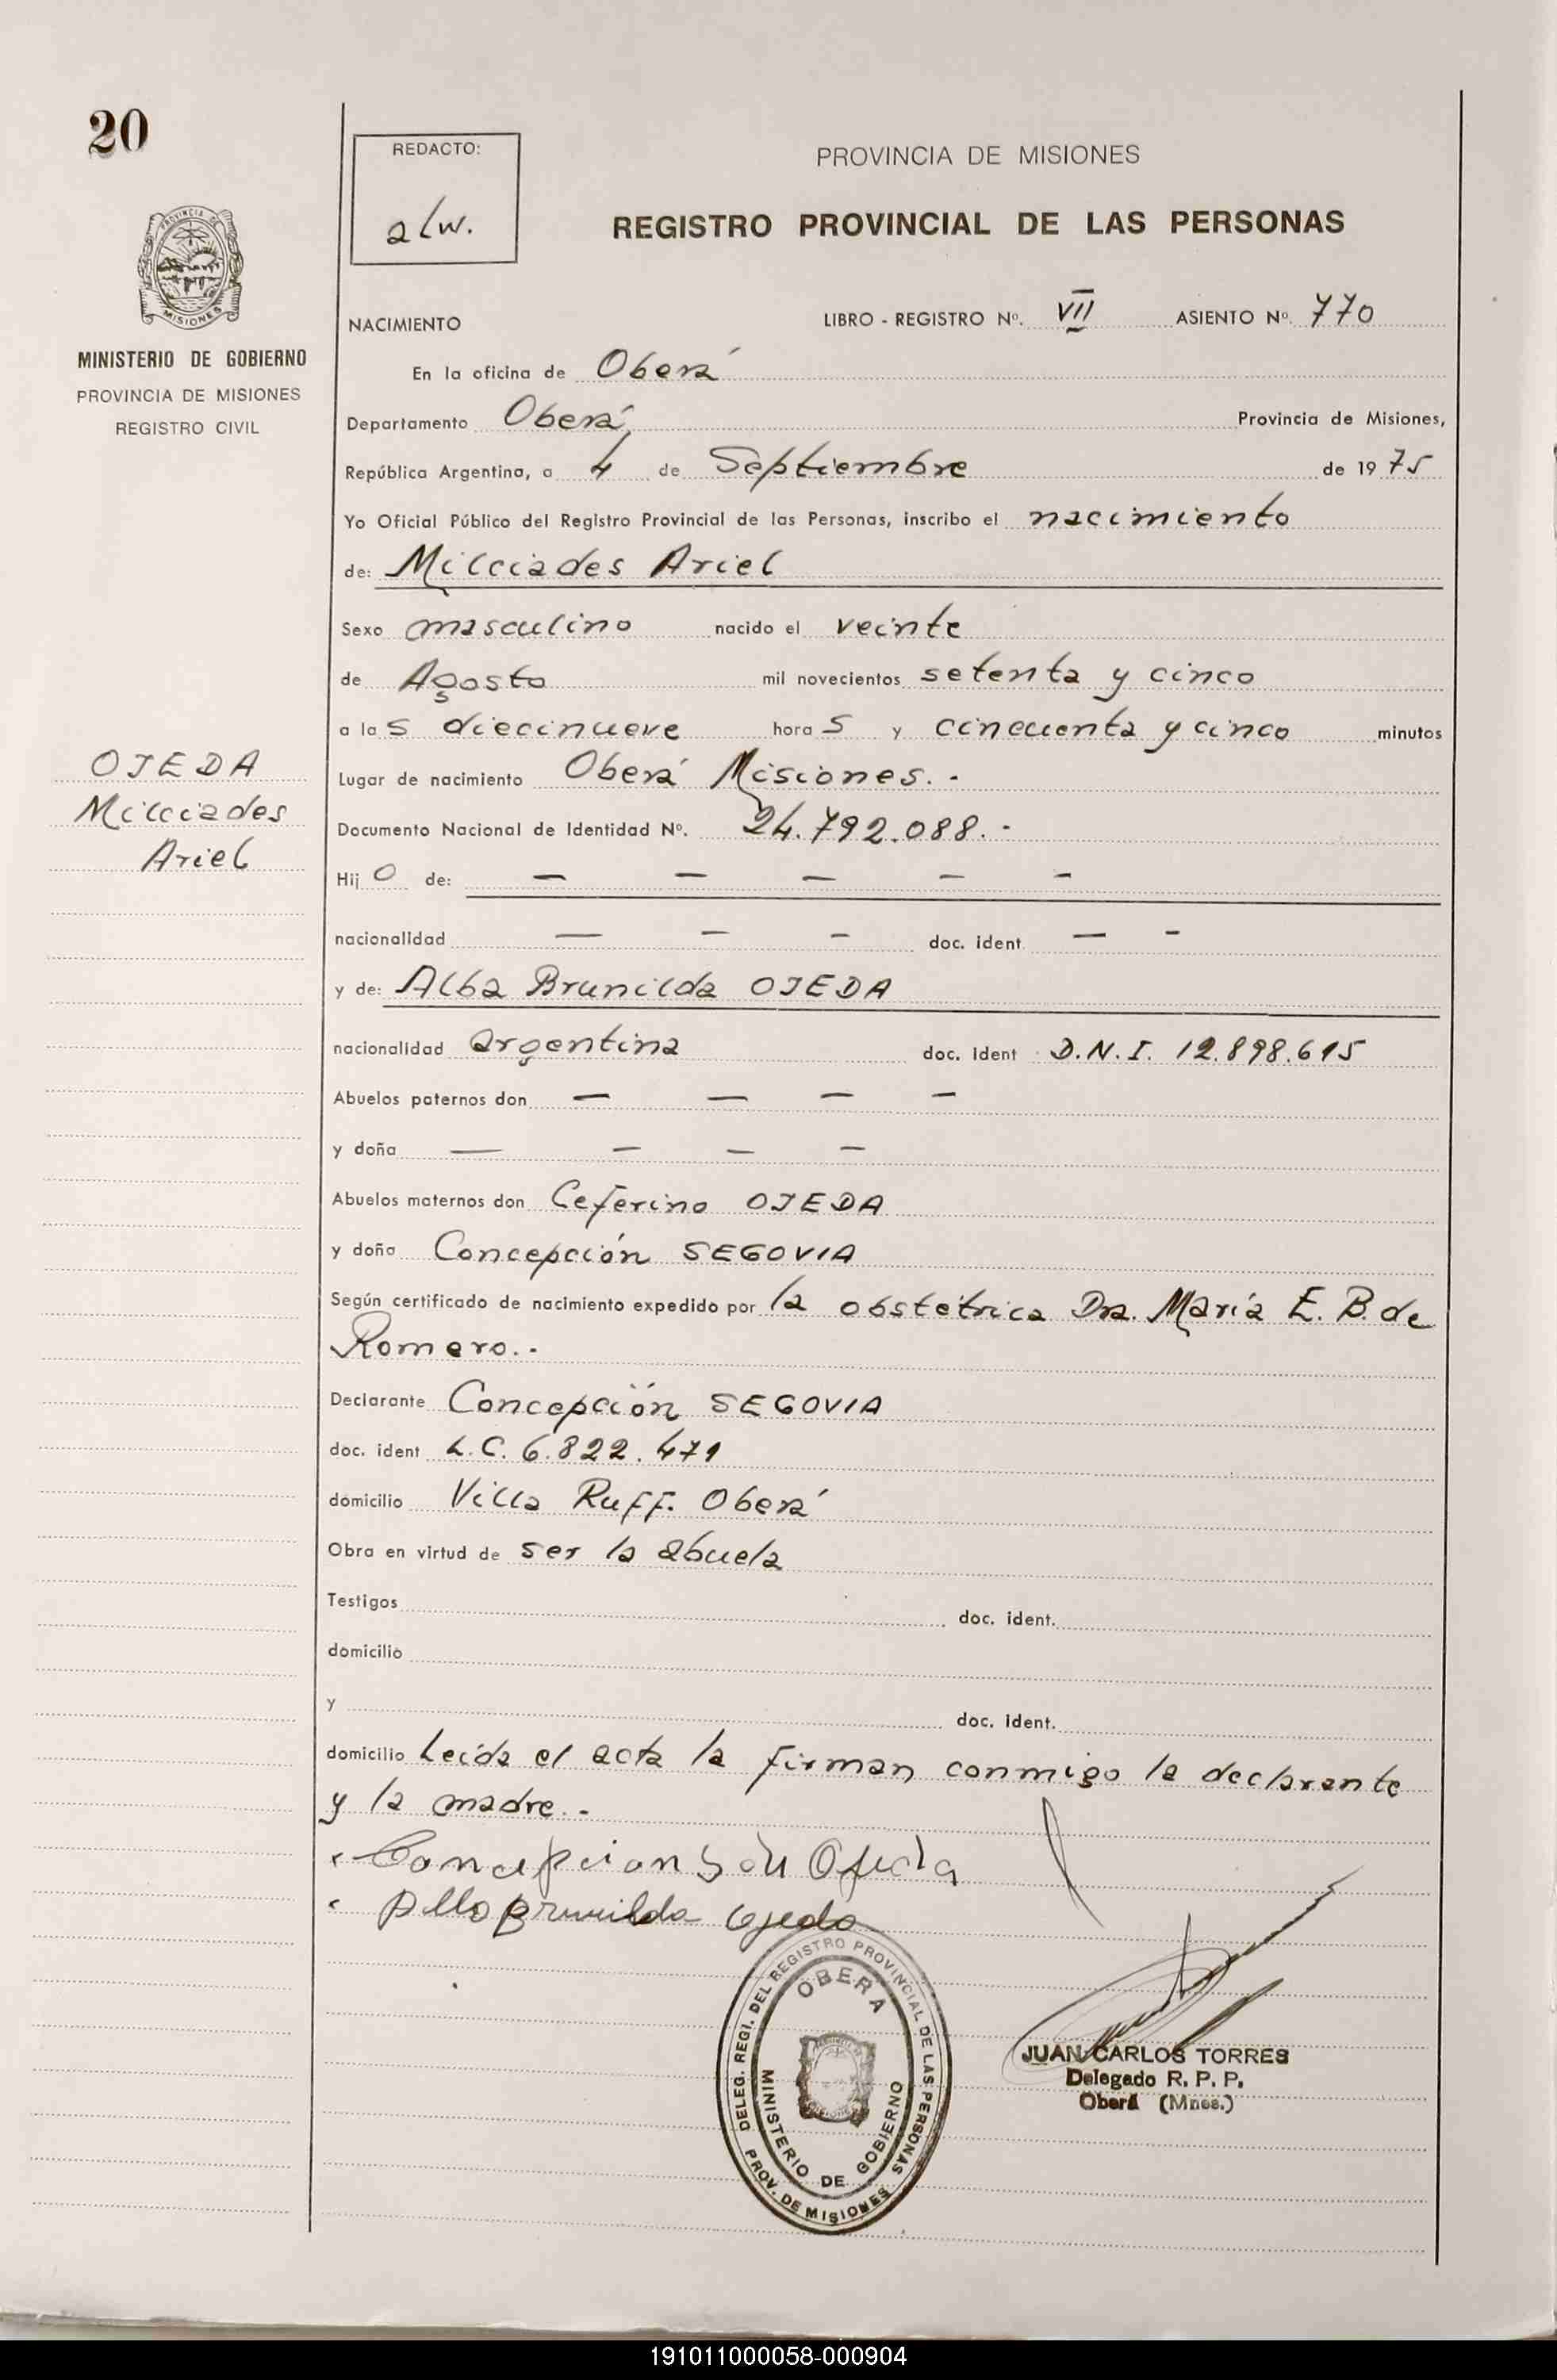 20
REDACTO:
a/w.
PROVINCIA DE MISIONES
REGISTRO PROVINCIAL DE LAS PERSONAS
PROVINCIA DE
MISIONES
MINISTERIO DE GOBIERNO
PROVINCIA DE MISIONES
REGISTRO CIVIL
NACIMIENTO LIBRO - REGISTRO Nº. VII ASIENTO Nº. 770
En la oficina de Oberá
Departamento Oberá Provincia de Misiones,
República Argentina, a 4 de Septiembre de 1975
Yo Oficial Público del Registro Provincial de las Personas, inscribo el nacimiento
de: Milciades Ariel
Sexo masculino nacido el veinte
de Agosto mil novecientos setenta y cinco
a las diecinueve horas y cincuenta y cinco minutos
OJEDA
Milciades
Ariel
Lugar de nacimiento Oberá Misiones. -
Documento Nacional de Identidad Nº. 24.792.088. -
Hijo de: — — — — -
nacionalidad — — - doc. ident. — -
y de: Alba Brunilda OJEDA
nacionalidad argentina doc. ident D.N.I. 12.898.615
Abuelos paternos don — — — —
y doña — — — —
Abuelos maternos don Ceferino OJEDA
y doña Concepción SEGOVIA
Según certificado de nacimiento expedido por la obstétrica Dra. María E. B. de
Romero. -
Declarante Concepción SEGOVIA
doc. ident L.C. 6.822.471
domicilio Villa Ruff. Oberá
Obra en virtud de ser la abuela
Testigos doc. ident.
domicilio
y doc. ident.
domicilio Leída el acta la firman conmigo la declarante
y la madre. -
Concepcion S de Ojeda
Brunilda Ojeda
DELEG. REGI. DEL REGISTRO PROVINCIAL DE LAS PERSONAS
OBERA
MINISTERIO DE GOBIERNO
PROV. DE MISIONES
JUAN CARLOS TORRES
Delegado R. P. P.
Oberá (Mnes.)
191011000058-000904